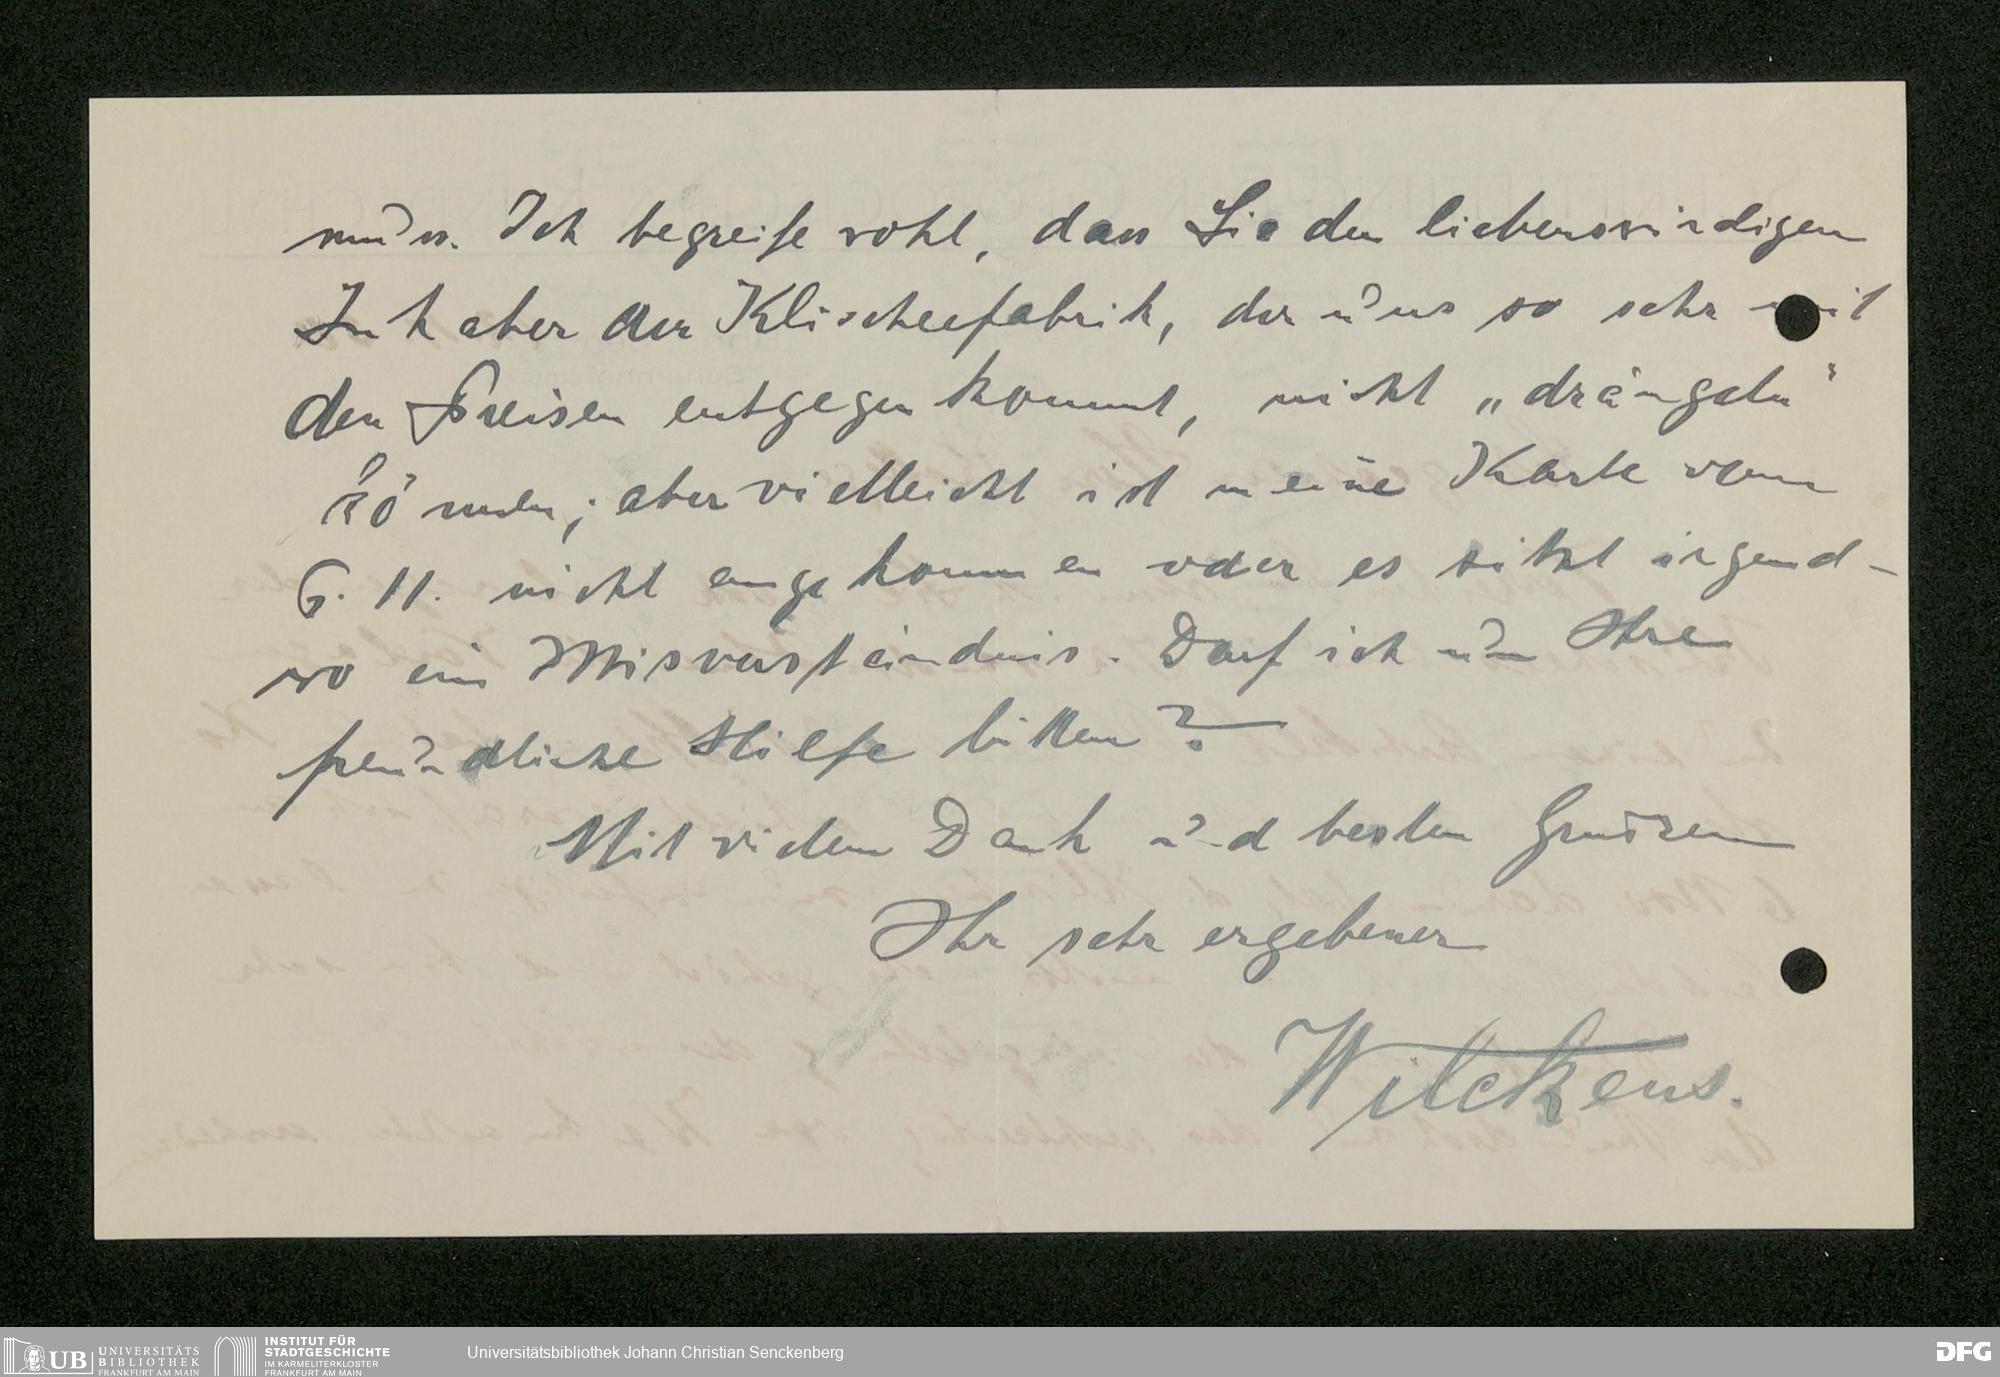 muss. Ich begreife wohl, dass Sie den liebenswürdigen
Inhaber der Klischeefabrik, der uns so sehr mit
den Preisen entgegenkommt, nicht „drängeln"
können; aber vielleicht ist meine Karte vom
6. 11. nicht angekommen oder es sitzt irgend-
wo ein Misverständnis. Darf ich um Ihre
freundliche Hilfe bitten?
Mit vielem Dank und besten Grüssen
Ihr sehr ergebener
Wilckens.
UB UNIVERSITÄTS
BIBLIOTHEK
FRANKFURT AM MAIN
INSTITUT FÜR
STADTGESCHICHTE
IM KARMELITERKLOSTER
FRANKFURT AM MAIN
Universitätsbibliothek Johann Christian Senckenberg
DFG